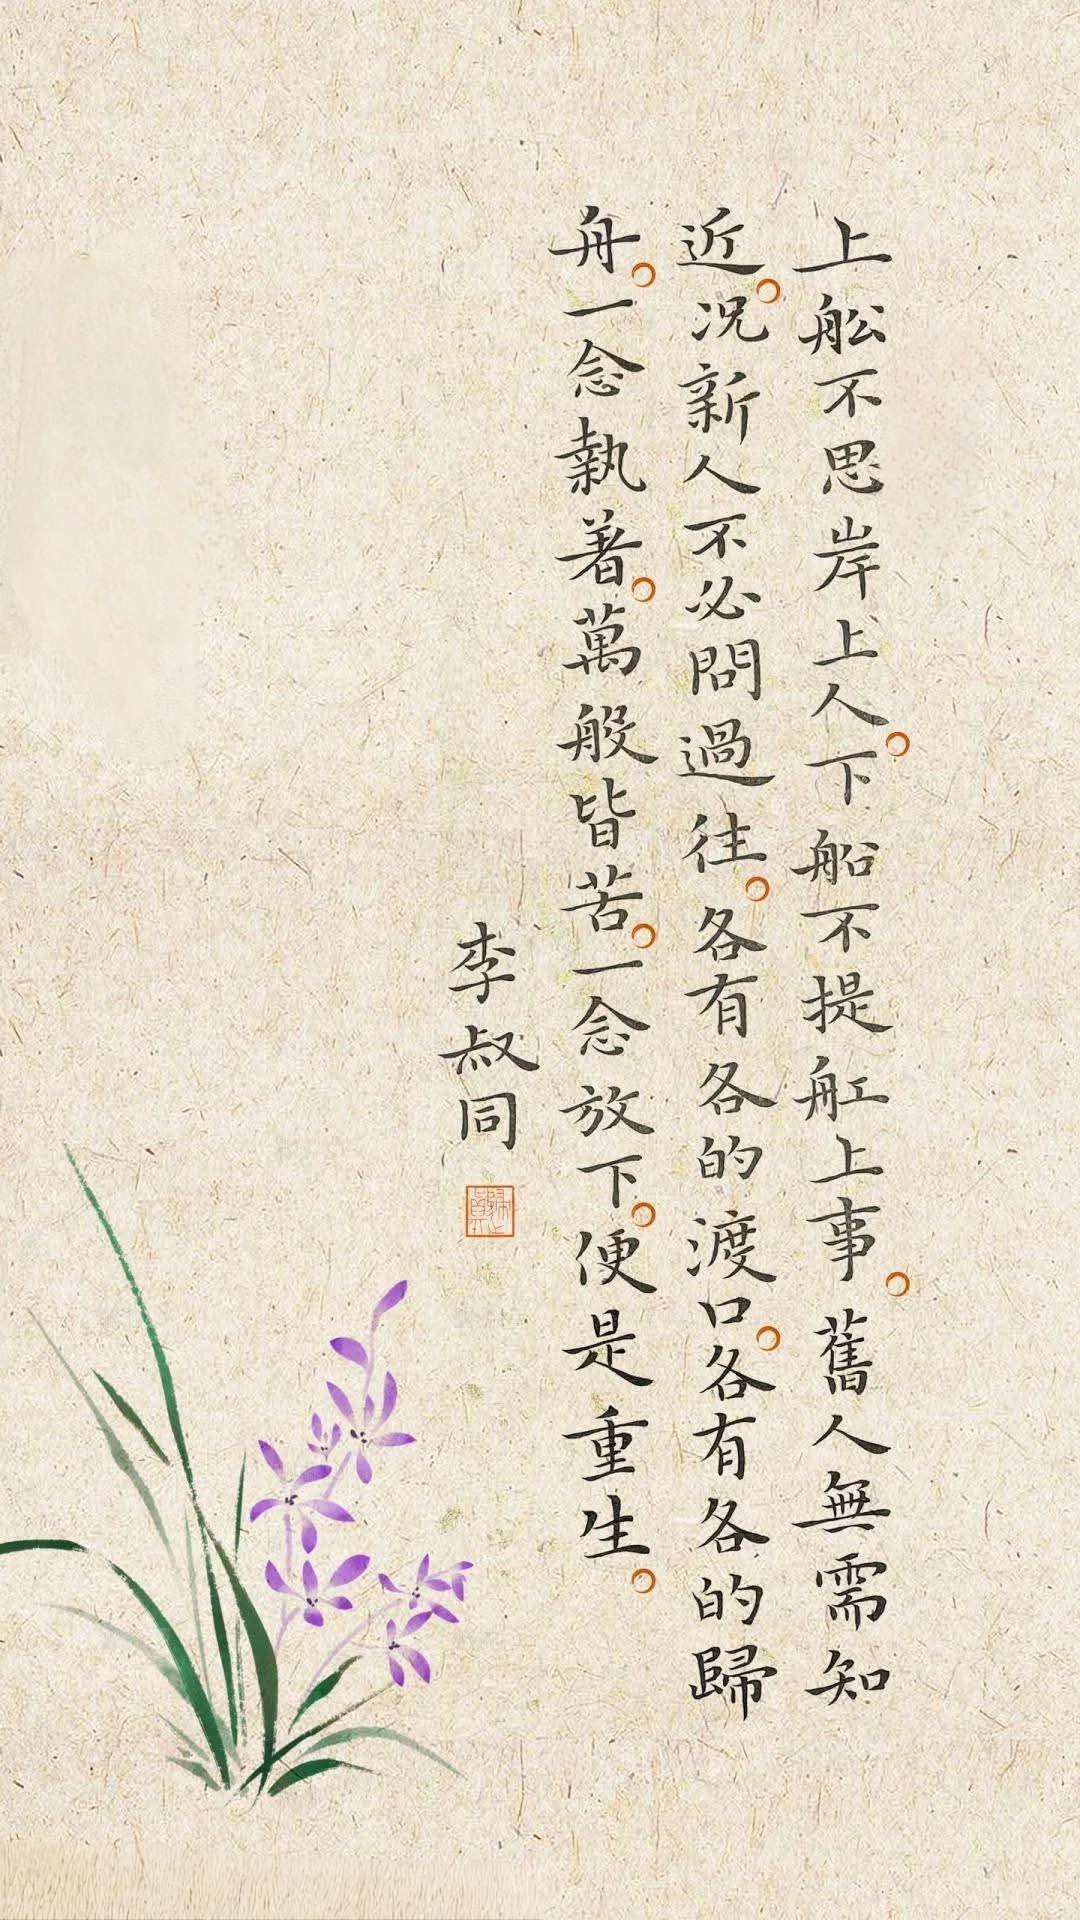 上舩不思岸上人。下船不提舡上事。舊人無需知
近。况新人不必問過往。各有各的渡口。各有各的歸
舟。一念執著。萬般皆苦。一念放下。便是重生。
李叔同